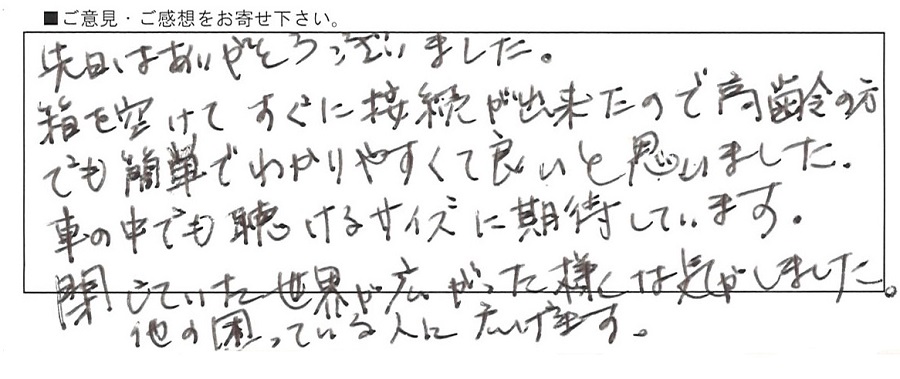 ■ご意見・ご感想をお寄せ下さい。
先日はありがとうございました。
箱を空けてすぐに接続が出来たので高齢の方
でも簡単でわかりやすくて良いと思いました。
車の中でも聴けるサイズに期待しています。
閉じていた世界が広がった様には気がしました。
他の困っている人に広げます。